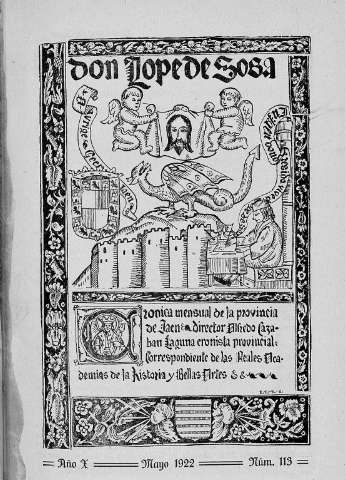 don Lope de Sosa
Cronica mensual de la provincia
de Jaen · director Alfredo Caza-
ban Laguna cronista provincial:
Correspondiente de las Reales Aca-
demias de la historia y Bellas Artes
Año X Mayo 1922 Núm. 113